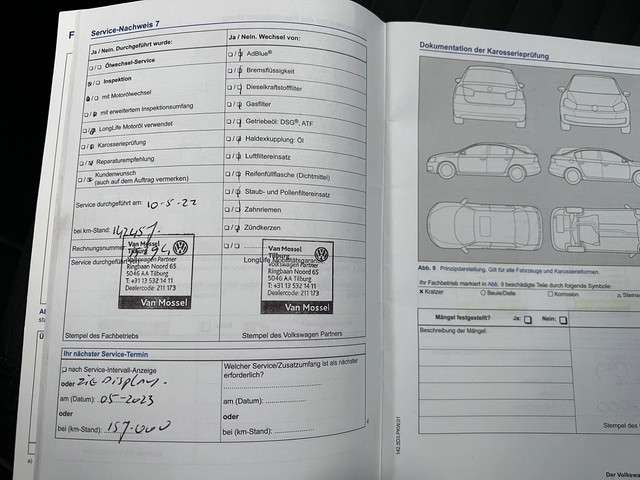 Service-Nachweis 7
Ja / Nein. Durchgeführt wurde:
Ölwechsel-Service
Inspektion
mit Motorölwechsel
mit erweitertem Inspektionsumfang
LongLife Motoröl verwendet
Karosserieprüfung
Reparaturempfehlung
Kundenwunsch
(auch auf dem Auftrag vermerken)
Service durchgeführt am: 10-5-22
bei km-Stand:
Rechnungsnummer
Service durchgeführt
Van Mossel
Tilburg
Volkswagen Partner
Ringbaan Noord 65
5046 AA Tilburg
T: +31 13 532 14 11
Dealercode: 211 173
Van Mossel
Stempel des Fachbetriebs
Ja / Nein. Wechsel von:
AdBlue®
Bremsflüssigkeit
Dieselkraftstofffilter
Gasfilter
Getriebeöl: DSG®, ATF
Haldexkupplung: Öl
Luftfiltereinsatz
Reifenfüllflasche (Dichtmittel)
Staub- und Pollenfiltereinsatz
Zahnriemen
Zündkerzen
LongLife Mobilitätsgarantie
Van Mossel
Tilburg
Volkswagen Partner
Ringbaan Noord 65
5046 AA Tilburg
T: +31 13 532 14 11
Dealercode: 211 173
Van Mossel
Stempel des Volkswagen Partners
Ihr nächster Service-Termin
nach Service-Intervall-Anzeige
oder zie Display.
am (Datum): 05-2023
oder
bei (km-Stand): 157.000
Welcher Service/Zusatzumfang ist als nächster
erforderlich?
am (Datum):
oder
bei (km-Stand):
Dokumentation der Karosserieprüfung
Abb. 9 Prinzipdarstellung. Gilt für alle Fahrzeuge und Karosserieformen.
Ihr Fachbetrieb markiert in Abb. 9 beschädigte Teile durch folgende Symbole:
x Kratzer
Beule/Delle
Korrosion
Mängel festgestellt? Ja: Nein:
Beschreibung der Mängel:
Stempel des
Der Volkswa